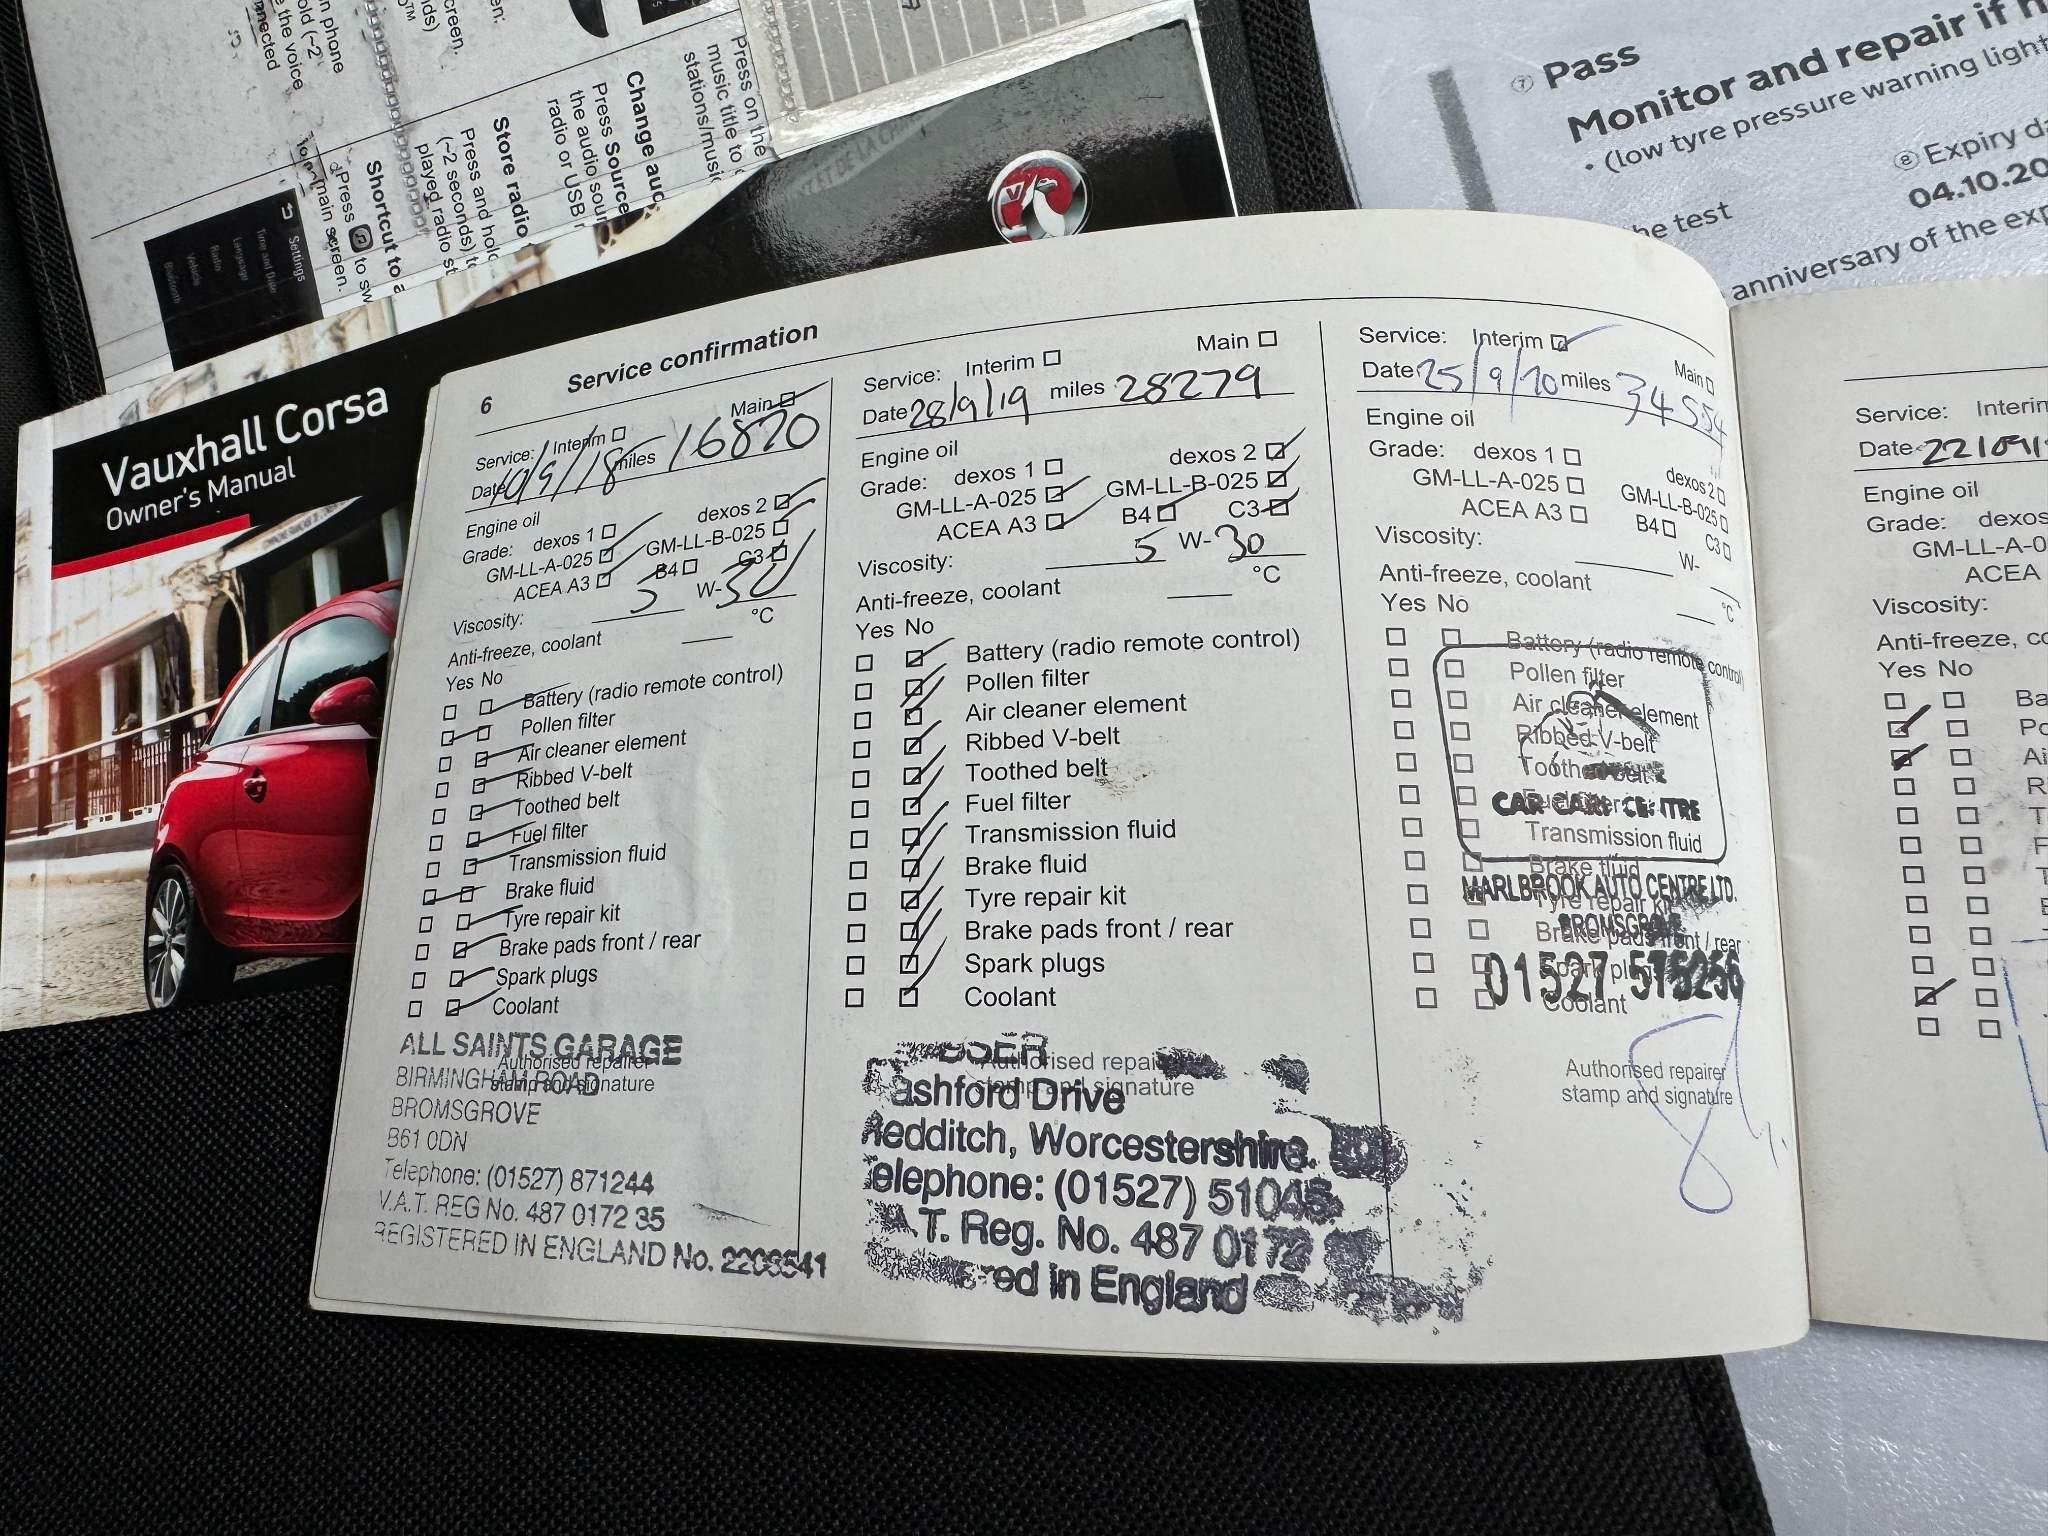 Press on the
music title to
stations/music
Change aud
Press Source
the audio sour
radio or USB
Store radio
Press and hold
(~2 seconds) to
played radio st
Shortcut to a
Press to sw
main screen.
Settings
Time and Date
Language
Radio
Vehicle
Bluetooth
n phone
old (~2
e the voice
nected
screen.
Pass
Monitor and repair if n
• (low tyre pressure warning light
Expiry da
04.10.20
he test
anniversary of the exp
Vauxhall Corsa
Owner's Manual
6 Service confirmation
Service: Interim Main
Date 10/9/18 miles 16820
Engine oil
Grade: dexos 1 dexos 2
GM-LL-A-025 GM-LL-B-025
ACEA A3 B4 C3
Viscosity: 5 W-30
Anti-freeze, coolant °C
Yes No
Battery (radio remote control)
Pollen filter
Air cleaner element
Ribbed V-belt
Toothed belt
Fuel filter
Transmission fluid
Brake fluid
Tyre repair kit
Brake pads front / rear
Spark plugs
Coolant
Authorised repairer
stamp and signature
ALL SAINTS GARAGE
BIRMINGHAM ROAD
BROMSGROVE
B61 0DN
Telephone: (01527) 871244
V.A.T. REG No. 487 0172 35
REGISTERED IN ENGLAND No. 2206541
Service: Interim Main
Date 28/9/19 miles 28279
Engine oil
Grade: dexos 1 dexos 2
GM-LL-A-025 GM-LL-B-025
ACEA A3 B4 C3
Viscosity: 5 W-30
Anti-freeze, coolant °C
Yes No
Battery (radio remote control)
Pollen filter
Air cleaner element
Ribbed V-belt
Toothed belt
Fuel filter
Transmission fluid
Brake fluid
Tyre repair kit
Brake pads front / rear
Spark plugs
Coolant
Authorised repai
stamp and signature
ashford Drive
Redditch, Worcestershire.
elephone: (01527) 51045
A.T. Reg. No. 487 0172
red in England
Service: Interim Main
Date 25/9/20 miles 34554
Engine oil
Grade: dexos 1 dexos 2
GM-LL-A-025 GM-LL-B-025
ACEA A3 B4 C3
Viscosity: W-
Anti-freeze, coolant °C
Yes No
Battery (radio remote control)
Pollen filter
Air cleaner element
Ribbed V-belt
Toothed belt
Fuel filter
Transmission fluid
Brake fluid
Tyre repair kit
Brake pads front / rear
Spark plugs
Coolant
CAR CARE CENTRE
MARLBROOK AUTO CENTRE LTD.
BROMSGROVE
01527 575256
Authorised repairer
stamp and signature
Service: Interim
Date 22/09/
Engine oil
Grade: dexos
GM-LL-A-0
ACEA
Viscosity:
Anti-freeze, co
Yes No
Ba
Po
Ai
R
T
F
T